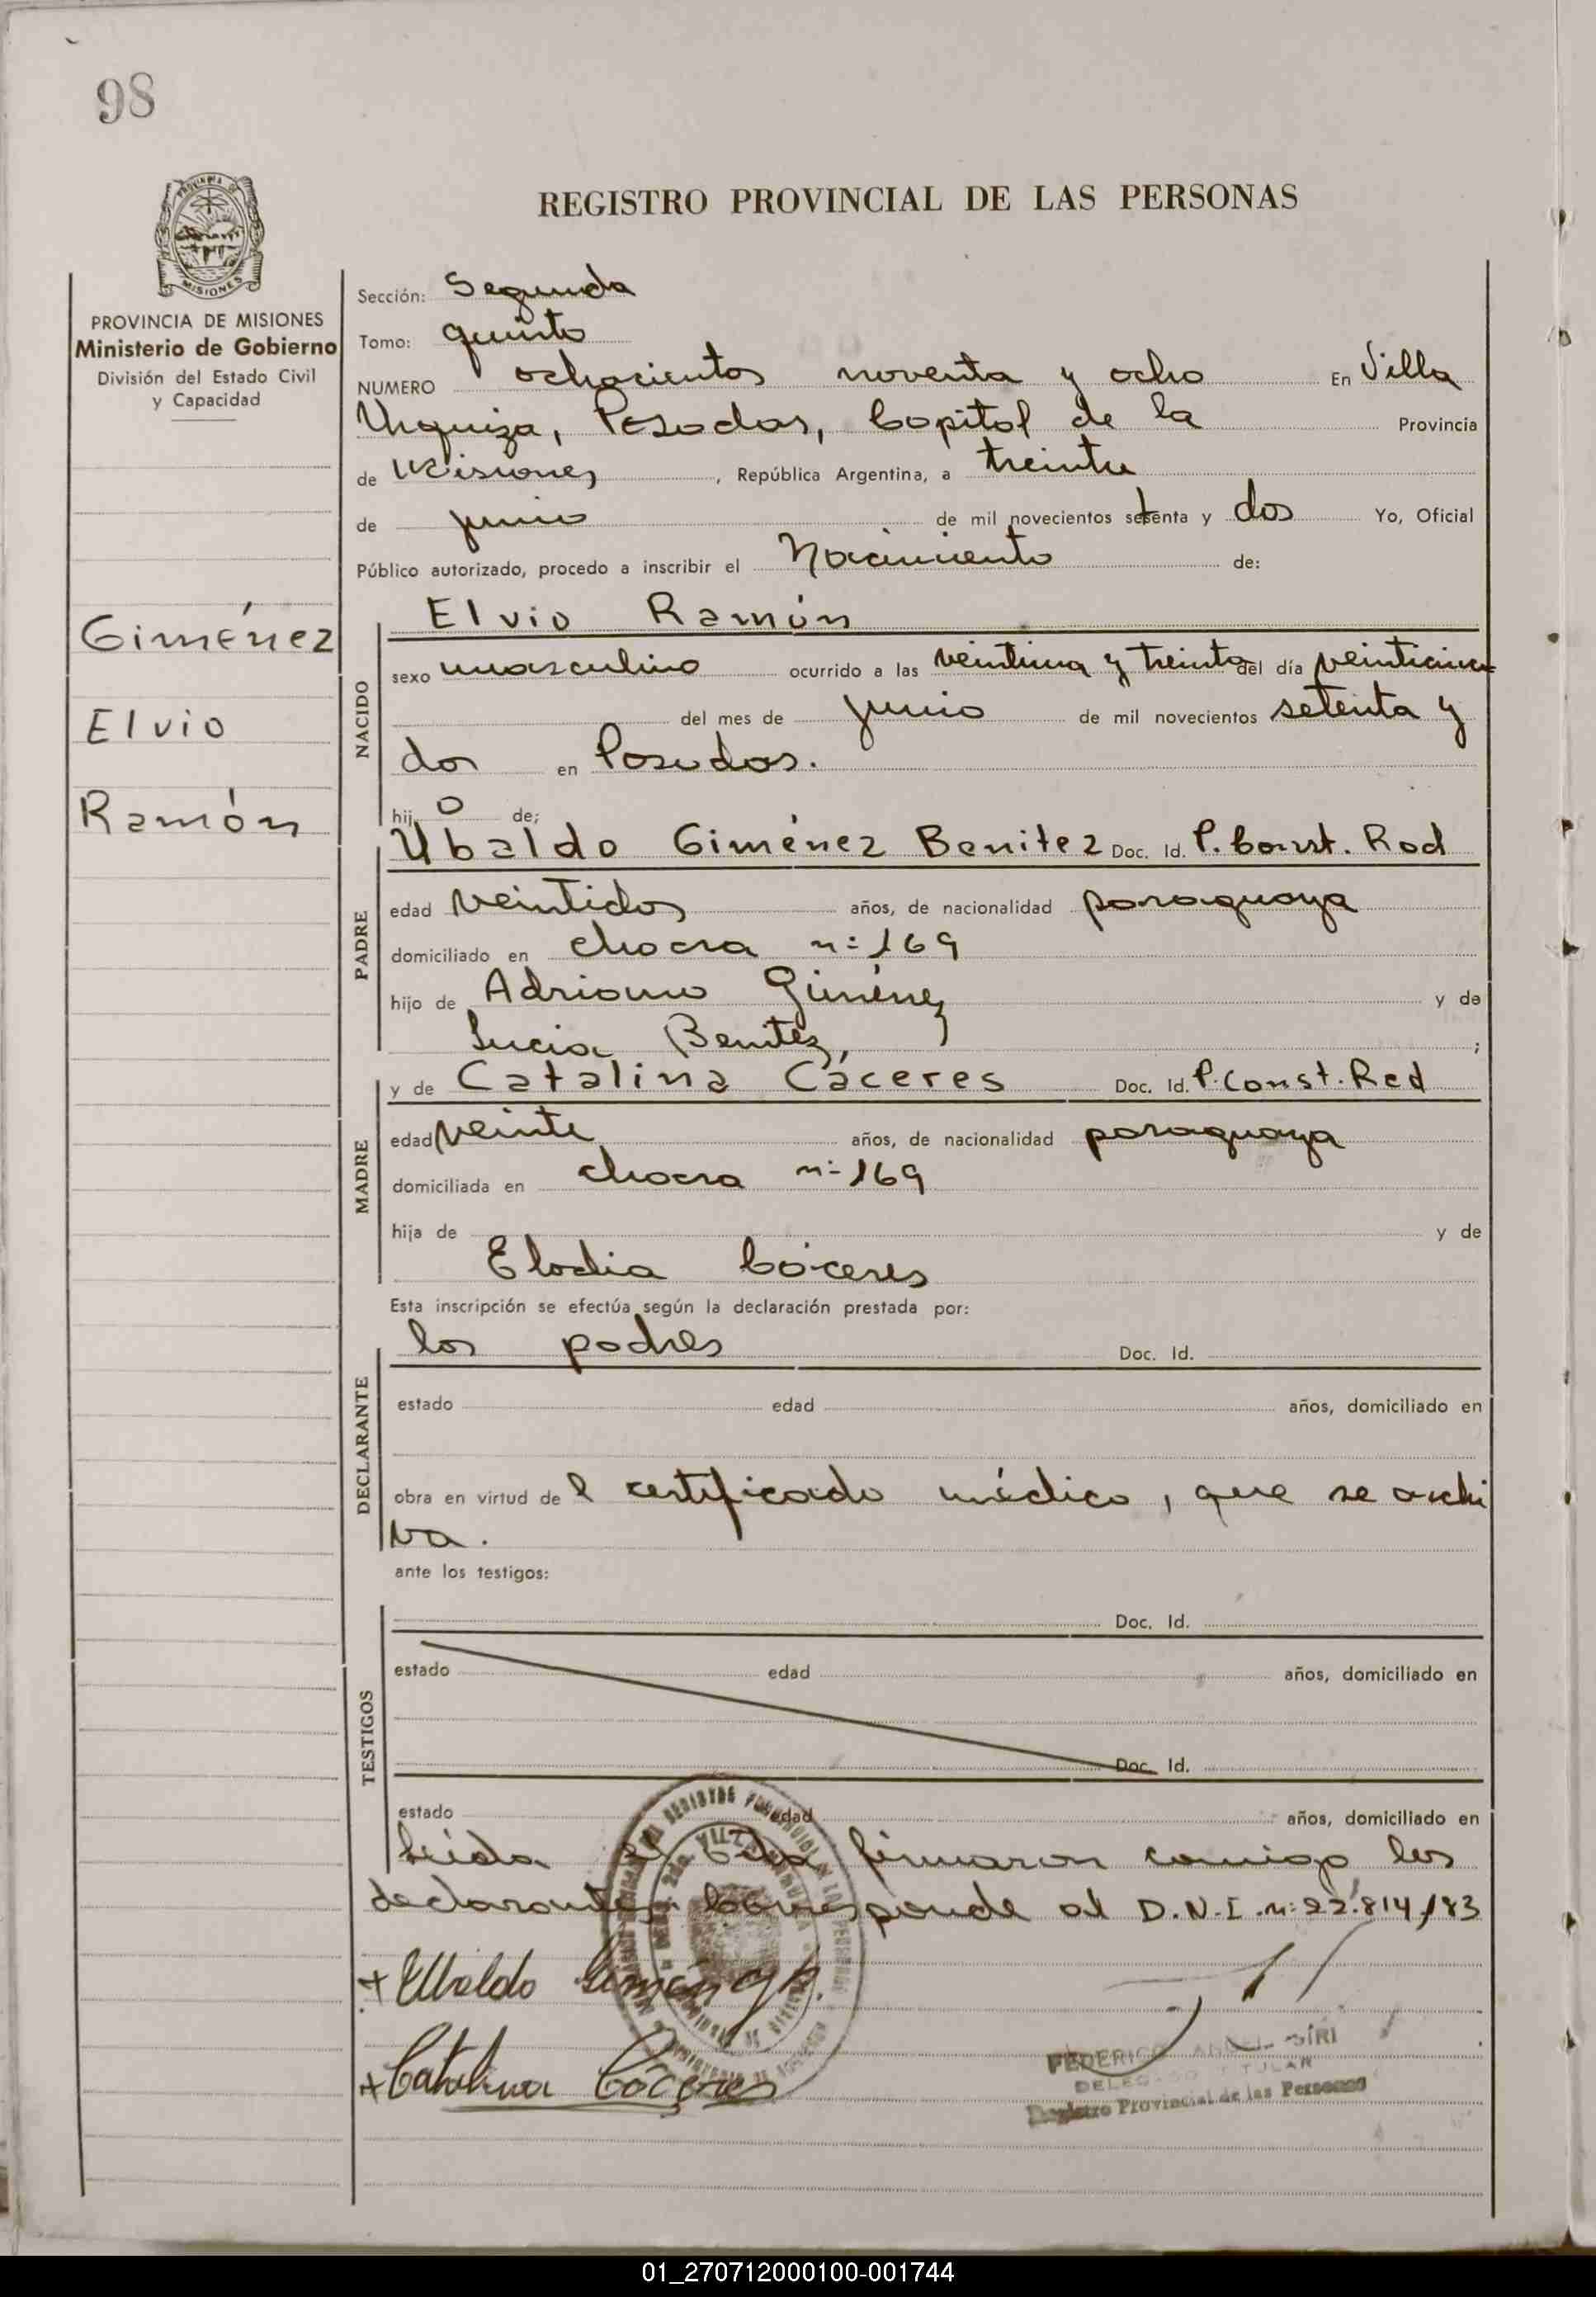 98
PROVINCIA DE
MISIONES
PROVINCIA DE MISIONES
Ministerio de Gobierno
División del Estado Civil
y Capacidad
Giménez
Elvio
Ramón
REGISTRO PROVINCIAL DE LAS PERSONAS
Sección: Segunda
Tomo: quinto
NUMERO ochocientos noventa y ocho En Villa
Urquiza, Posadas, Capital de la Provincia
de Misiones, República Argentina, a treinta
de junio de mil novecientos setenta y dos Yo, Oficial
Público autorizado, procedo a inscribir el Nacimiento de:
Elvio Ramón
NACIDO
sexo masculino ocurrido a las veintiuna y treinta del día veinticinco
del mes de junio de mil novecientos setenta y
dos en Posadas.
hijo de;
PADRE
Ubaldo Giménez Benitez Doc. Id. P. Const. Rad
edad veintidos años, de nacionalidad paraguaya
domiciliado en chacra n: 169
hijo de Adriano Giménez y de
Lucia Benitez, ;
MADRE
y de Catalina Cáceres Doc. Id. P. Const. Rad
edad veinte años, de nacionalidad paraguaya
domiciliada en chacra n: 169
hija de y de
Elodia Cáceres
Esta inscripción se efectúa según la declaración prestada por:
DECLARANTE
los padres Doc. Id.
estado edad años, domiciliado en
obra en virtud del certificado médico, que se archi
va.
ante los testigos:
TESTIGOS
Doc. Id.
estado edad años, domiciliado en
Doc. Id.
estado edad años, domiciliado en
Leída el Acta firmaron conmigo los
declarantes. Corresponde al D.N.I. n: 22.814.183
+ Ubaldo Giménez B.
+ Catalina Cáceres
FEDERICO ANGEL SIRI
DELEGADO TITULAR
Registro Provincial de las Personas
01_270712000100-001744